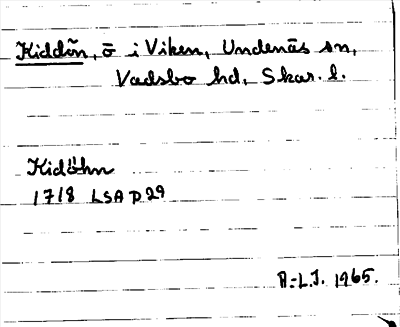 Kiddön, ö i Viken, Undenäs sn,
Vadsbo hd, Skar. l.
Kidöhn
1718 LSA P 29
A-L.J. 1965.